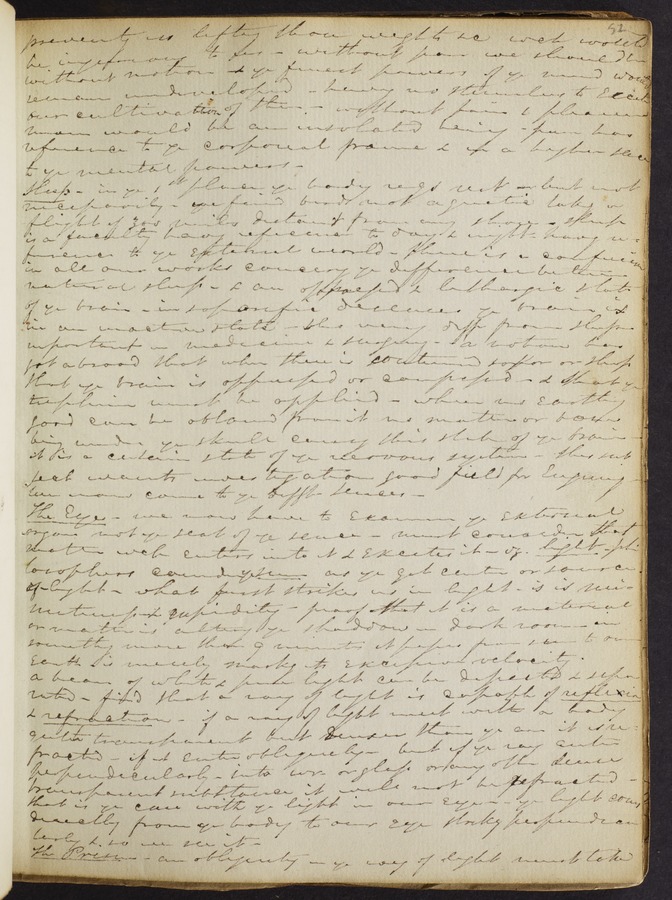 52
prevents us lifting those weights &c wch would
be injurious to us - without pain we should be
without motion & ye finest powers of ye mind would
remain undeveloped - having no stimulus to excite
our cultivation of them - without pain & pleasure
man would be an insolated being - pain has
reference to ye corporeal frame & in a higher sence
to ye mental powers -
Sleep - in ye 1st place ye body reqs rest - but not
necessarily - we find birds not aquatic take a
flight of 300 miles distant from any shore - sleep
is a faculty having referrence to day & night - having re-
ference to ye external world - there is a confusion
in all our works concerng ye difference between
natural sleep - & an oppressed & lathargic state
of ye brain - in soporific diseases ye brain is
in an inactive state - this very diff from sleep
important in medicine & surgery - a notion has
got abroad that when there is continued sopor or sleep
that ye brain is oppressed or compressed - & that ye
trephine must be applied - when no earthly
good can be obtained from it no matter or bone
being under ye skull causg this state of ye brain -
it is a certain state of ye nervous system - this sub
ject wants investigation good field for Enquiry -
we now come to ye difft sences -
The Eye - we now have to Examine ye External
organ not ye seat of ye sence - must consider that
matter wch enters into it & Excites it - viz. light - phi
losophers ye sun as ye gt centre or source
of light - what first strikes us in light - is is mi-
nuteness & rapidity - proof that it is a material
or matter is ye shaddow - dark room - in
something more than 7 minutes it passes from sun to our
Earth is merely marks its excessive velocity.
a beam of white & pure light can be & sepa
rated - find that a ray of light is capable of reflexion
& refraction - if a ray of light meet with a body
quite transparent but denser than ye air it is re-
fracted - if it enter obliquely - but if ye ray enter
perpendicularly - into wr or glass or any othr dense
transparent substance it will not be refracted -
that is ye case with ye light in our eye - ye light comes
directly from ye body to our eye perpendicu
larly & so we see it -
The Prism - an obliquity - ye ray of light must take